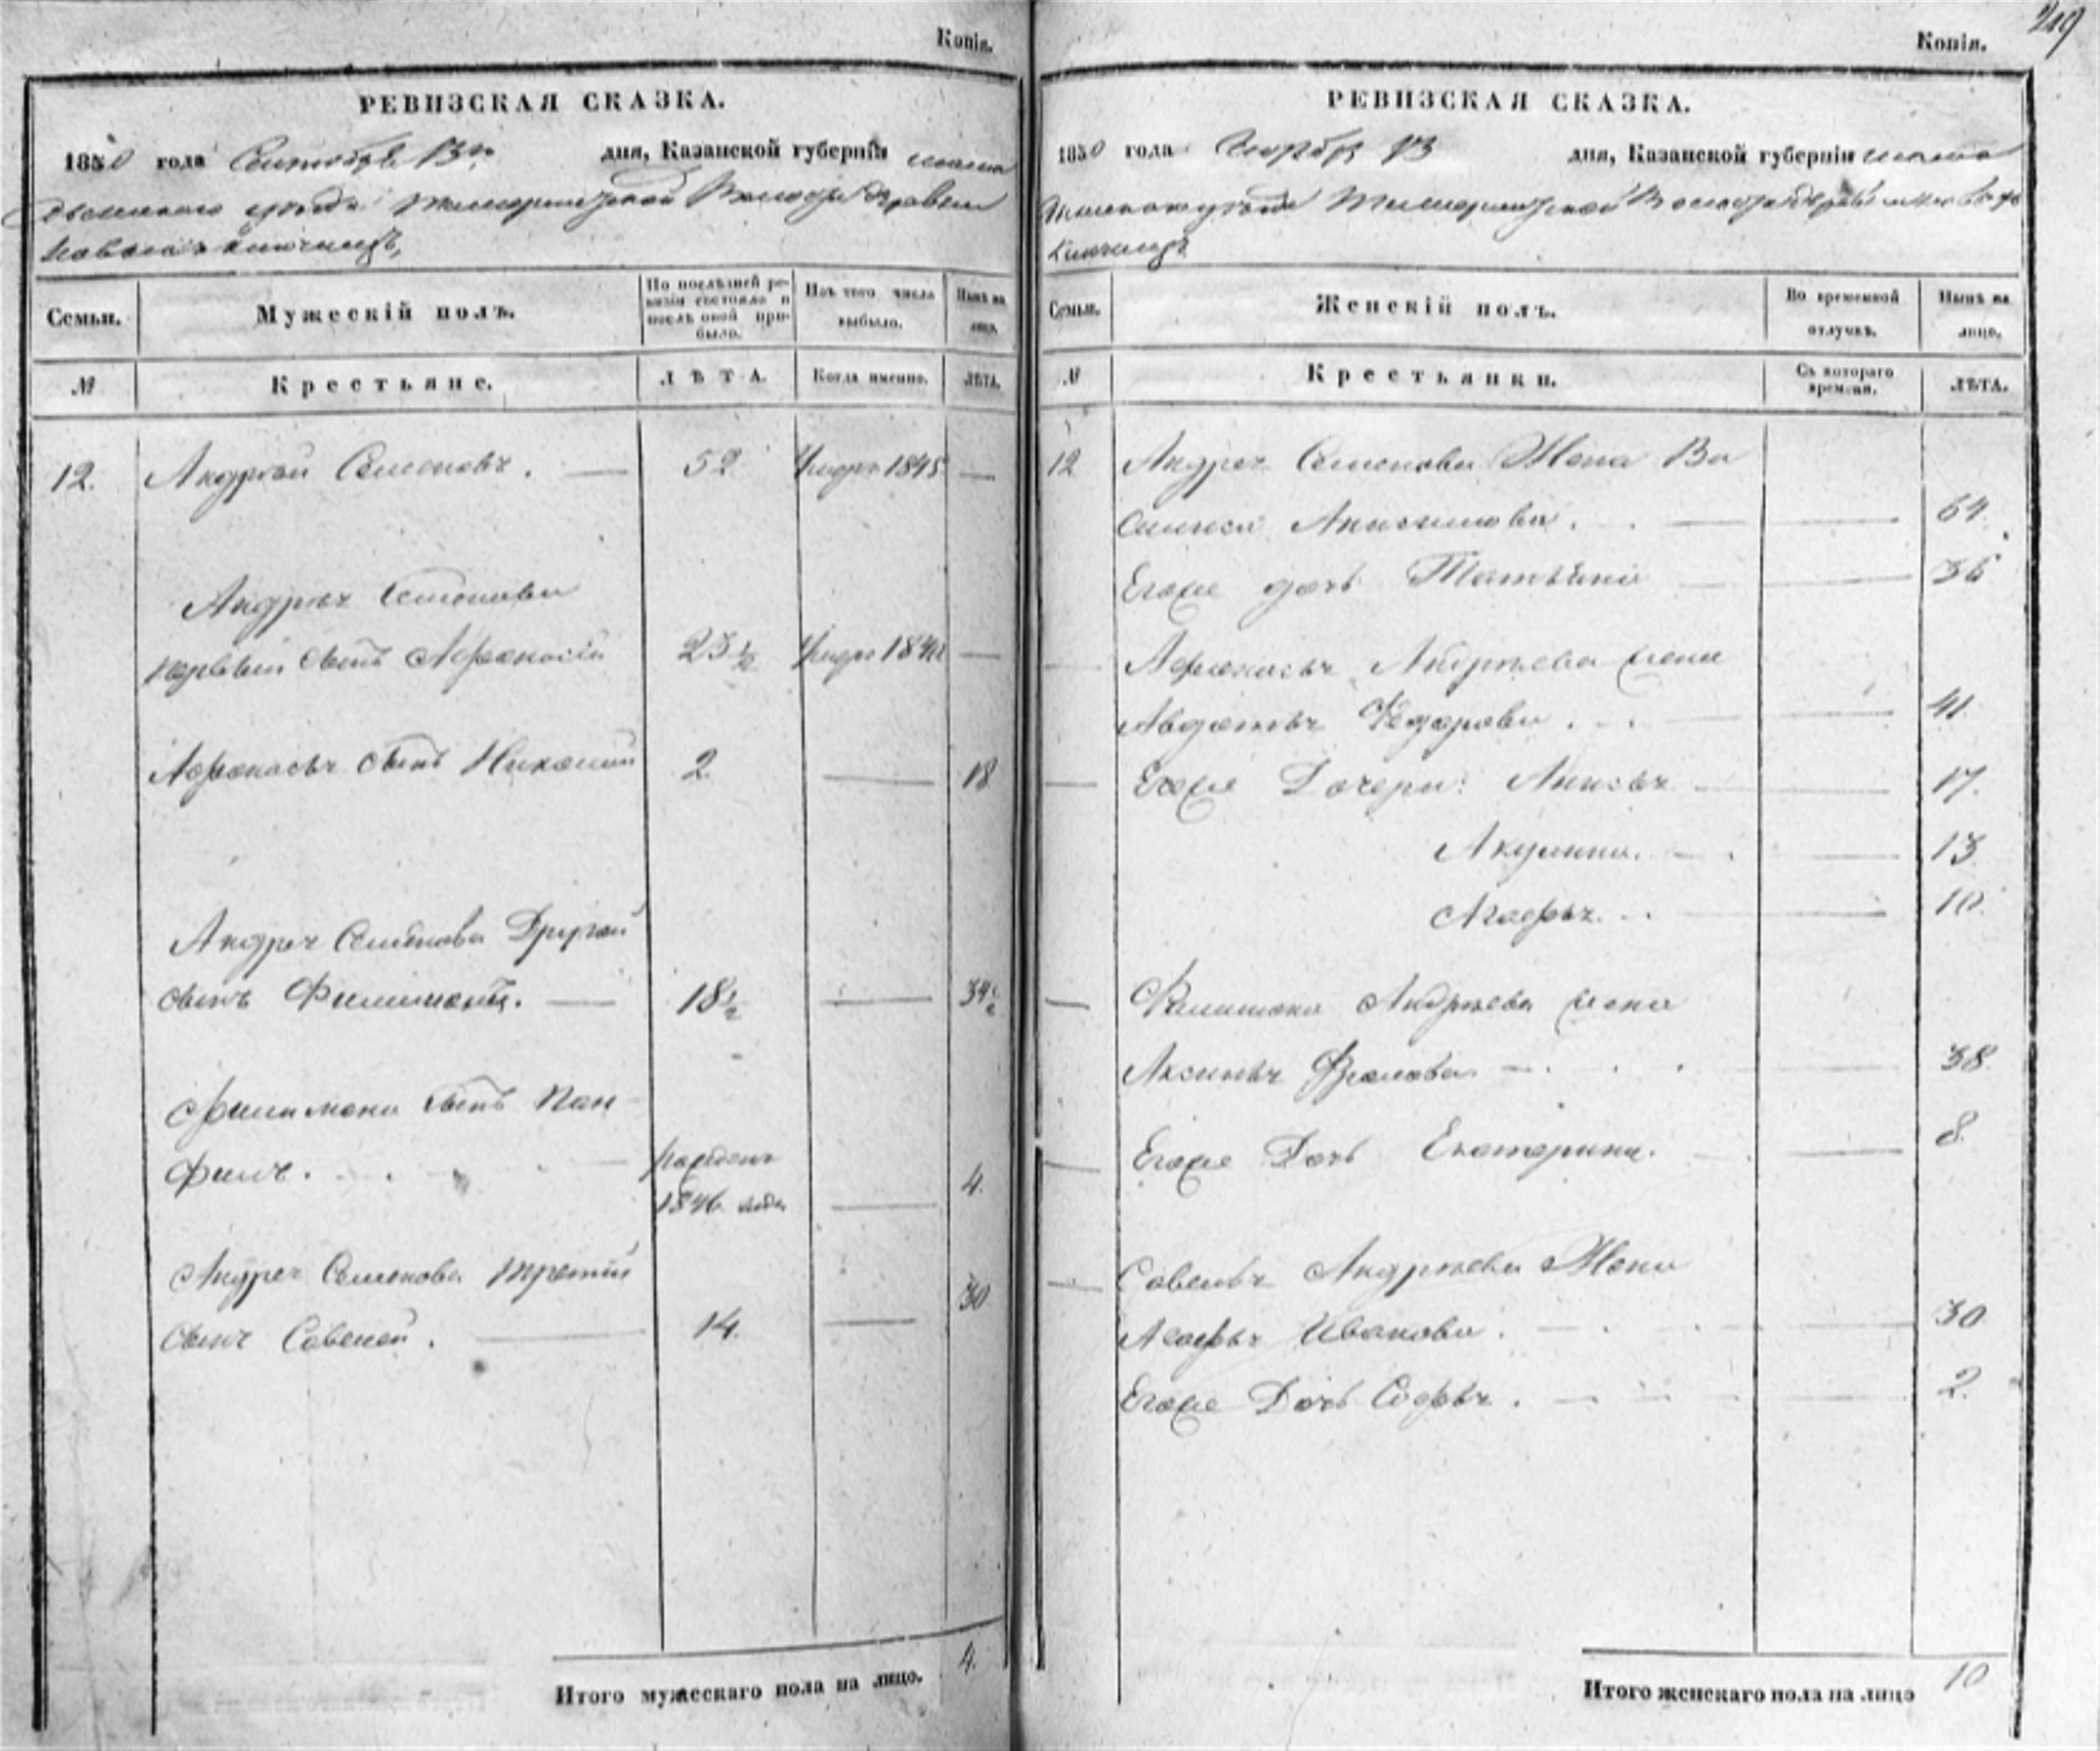 Копія.
РЕВИЗСКАЯ СКАЗКА.
1850 года Сентября 13 дня, Казанской губерніи
уѣзда Волости деревни
По послѣдней ревизіи состояло и послѣ оной прибыло.
Изъ того числа выбыло.
Нынѣ на лицо.
Семьи.
Мужескій полъ.
№
Крестьяне.
ЛѢТА.
Когда именно.
ЛѢТА.
12. Андрей Семеновъ. 52 Умеръ 1845
Андрея Семенова
первый сынъ Афонасій 23 1/2 Умеръ
Афонасья сынъ Николай 2 18
Андрея Семенова Другой
сынъ Филимонъ. 18 1/2 34 1/2
Филимона сынъ Пан
филъ. рожденъ 4.
1846 года
Андрея Семенова третій 30
сынъ Савелей. 14.
Итого мужескаго пола на лицо. 4.
249
Копія.
РЕВИЗСКАЯ СКАЗКА.
1850 года 13 дня, Казанской губерніи
уѣзда Волости деревни
Семьи.
Женскій полъ.
Во временной отлучкѣ.
Нынѣ на лицо.
№
Крестьянки.
Съ котораго времени.
ЛѢТА.
12 Андрея Семенова Жена Ва
силиса 64.
Егоже дочь Татьяна 36
Афонасья Андреева жена
Авдотья Федорова. 41.
Егоже Дочери: Анисья 17.
Акулина. 13
Агафья. 10.
Филимона Андреева жена
Аксинья Фролова 38.
Егоже Дочь Екатерина. 8.
Савелья Андреева Жена
Агафья Иванова. 30
Егоже Дочь Софья. 2.
Итого женскаго пола на лицо 10